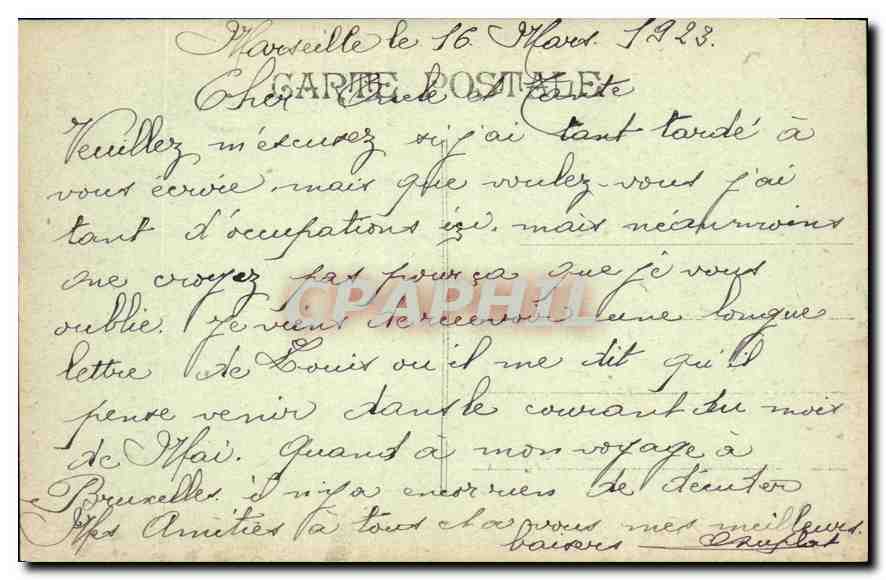 Marseille le 16 Mars. 1923.
CARTE POSTALE
Cher Oncle et Tante
Veuillez m'escusez si j'ai tant tardé à
vous écroie, mais que voulez-vous j'ai
tant d'occupations izi. mais néaurmoins
ne croyez pas pour ça que je vous
oublie. Je viens de recevoir une longue
CPAPHIL
lettre de Louis ou il me dit qu'il
pense venir dans le courant du mois
de Mai. Quand à mon voyage à
Bruxelles. il n'y a encorrien de décuter
Mes Amitiés à tous et a vous mes meilleurs.
baisers